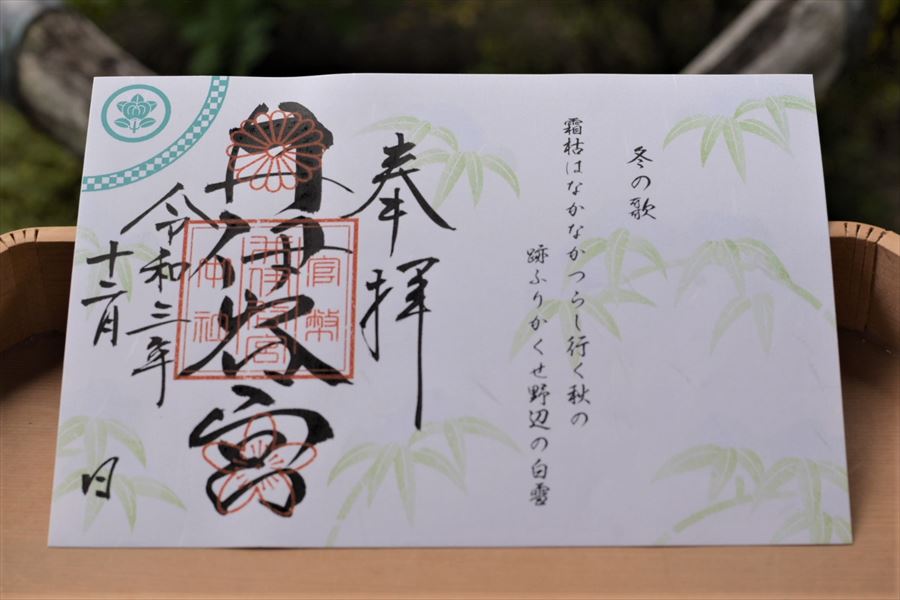 冬の歌
霜枯はなかなかつらし行く秋の
跡ふりかくせ野辺の白雪
奉拝
井伊谷宮
官幣
井伊谷宮
中社
令和三年
十二月　日